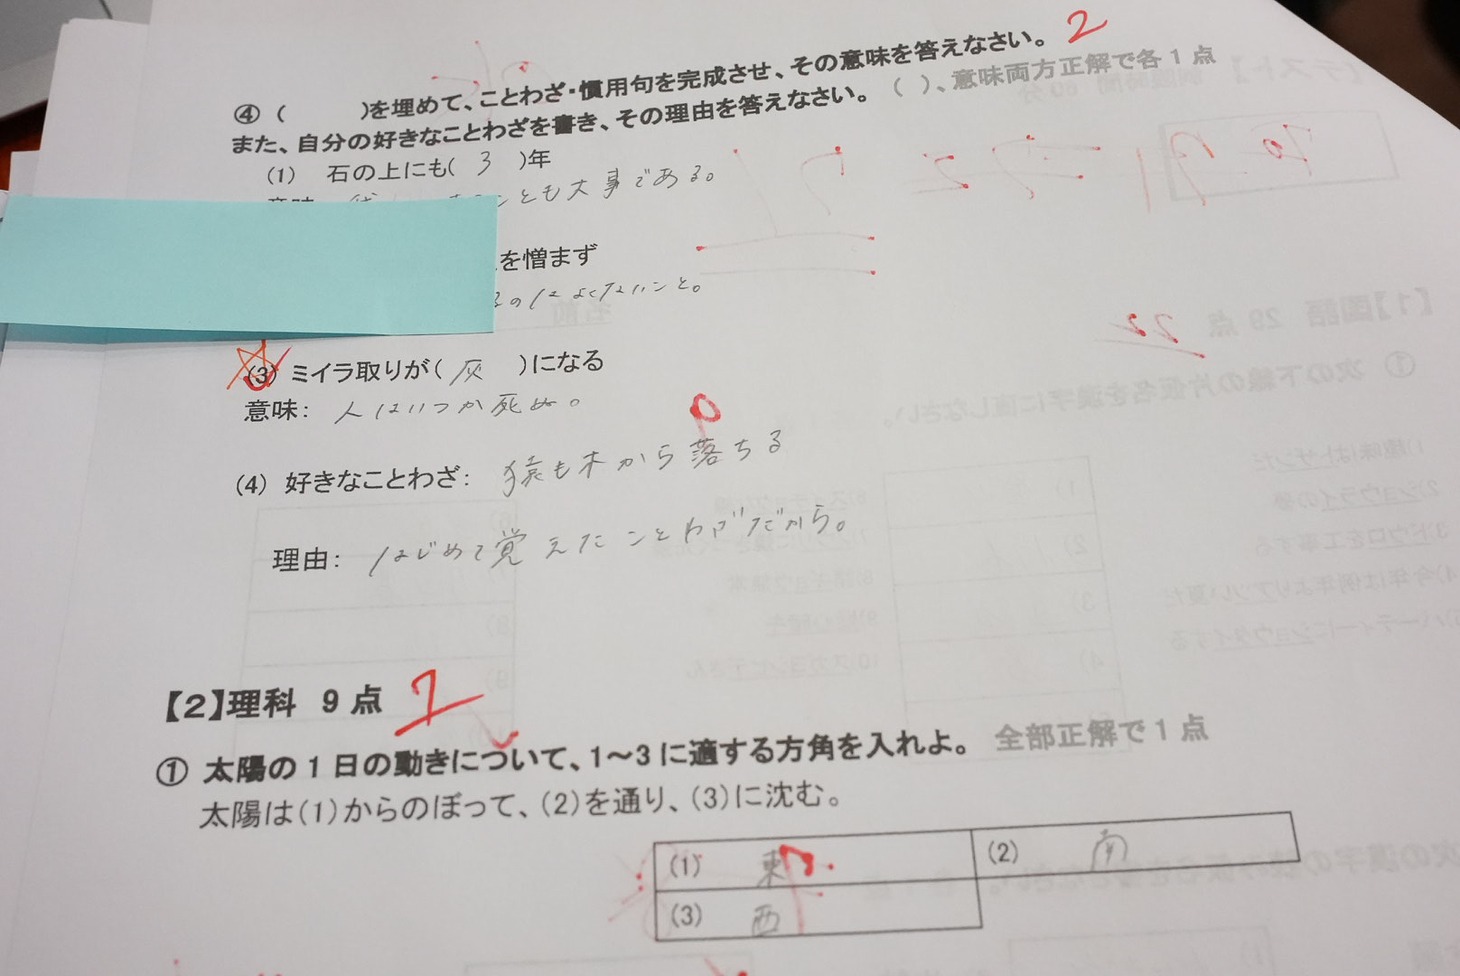 ④ (　　　)を埋めて、ことわざ・慣用句を完成させ、その意味を答えなさい。 2
また、自分の好きなことわざを書き、その理由を答えなさい。 ( )、意味両方正解で各1点
(1) 石の上にも( 3 )年
ことも大事である。
を憎まず
のはよくないこと。
(3) ミイラ取りが( 灰 )になる
意味: 人はいつか死ぬ。
(4) 好きなことわざ: 猿も木から落ちる
理由: はじめて覚えたことわざだから。
【2】理科 9点 1
① 太陽の1日の動きについて、1～3に適する方角を入れよ。 全部正解で1点
太陽は(1)からのぼって、(2)を通り、(3)に沈む。
(1) 東 (2) 南
(3) 西